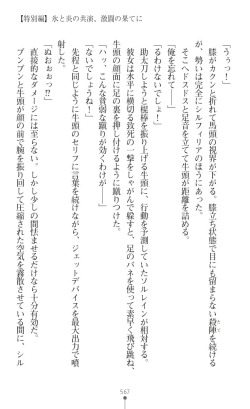 【特別編】氷と炎の共演、激闘の果てに
「うぅっ！」
膝がカクンと折れて馬頭の視界が下がる。膝立ち状態で目にも留まらない殺陣を続ける
が、勢いは完全にシルフィリアのほうにあった。
そこへドスドスと足音を立てて牛頭が距離を詰める。
「俺を忘れて――」
「るわけないでしょ！」
助太刀しようと棍棒を振り上げる牛頭に、行動を予測していたソルレインが相対する。
彼女は水平に横切る致死の一撃をしゃがんで躱すと、足のバネを使って素早く飛び跳ね、
牛頭の顔面に足の裏を押し付けるように蹴りつけた。
「ハッ、こんな貧弱な蹴りが効くわけが――」
「ないでしょうね！」
先程と同じように牛頭のセリフに言葉を続けながら、ジェットデバイスを最大出力で噴
射した。
「ぬおぉぉっ⁉」
直接的なダメージには至らない。しかし少しの間怯ませるだけなら十分有効だ。
ブンブンと牛頭が顔の前で腕を振り回して圧縮された空気を霧散させている間に、シル
567